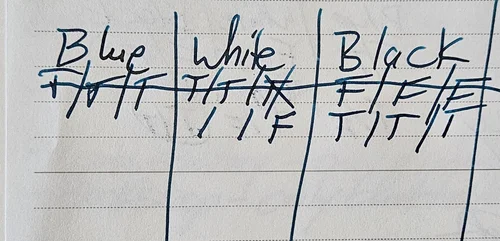 Blue White Black
T/T/T T/T/X F/F/F
/ / F T/T/T